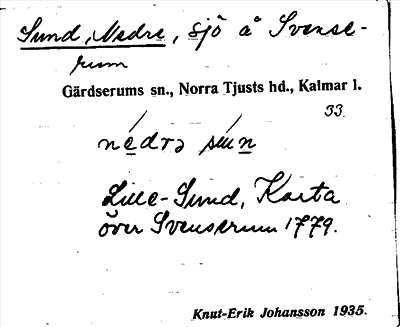 Sund, Nedre, sjö å Svense-
rum
Gärdserums sn., Norra Tjusts hd., Kalmar l.
33.
nedrə sun
Lille-Sund, Karta
över Svenserum 1779.
Knut-Erik Johansson 1935.